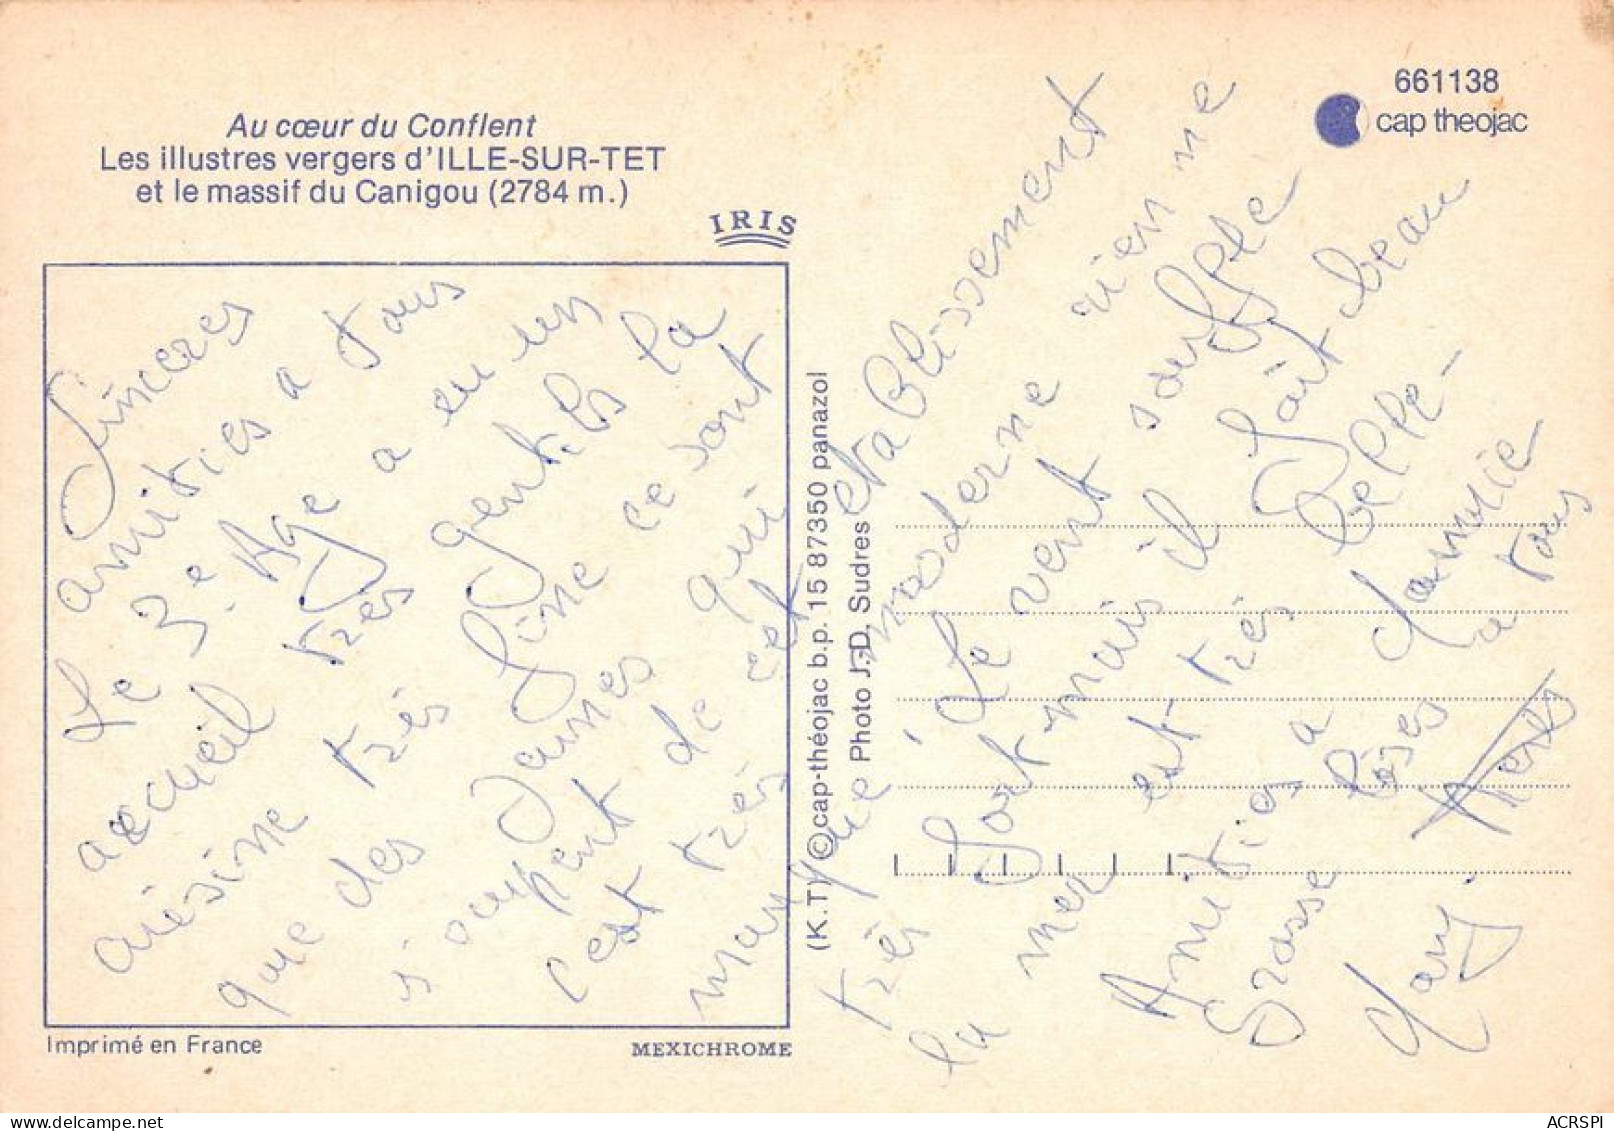 661138
cap theojac
Au cœur du Conflent
Les illustres vergers d'ILLE-SUR-TET
et le massif du Canigou (2784 m.)
IRIS
Sinceres
amities a tous
Le 3e Age a eu un
accueil très gentils la
cuisine très fine ce sont
que des Dames qui
s'occupent de cet etablissement
c'est très moderne rien ne
manque Le vent souffle
très fort mais il fait beau
la mer est très belle
Amities a
Grosse bises a tous
Dany
(K.T) ©cap-théojac b.p. 15 87350 panazol
Photo J.D. Sudres
Imprimé en France
MEXICHROME
delcampe.net
ACRSPI